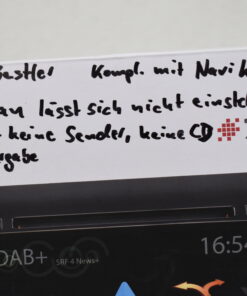 Bastler Kompl. mit Navi
lässt sich nicht einstell
keine Sender, keine CD
DAB+ SRF 4 News+ 16:54